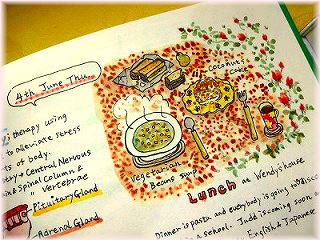 4th June Thu.
therapy using
to alleviate stress
of body.
Central Nervous
Spinal Column &
" Vertebrae
Pituitary Gland
Adrenal Gland
coconuts
cake
Vegetarian
Beans soup
Lunch at Wendy's house
Dinner is pasta and everybody is going to
is a school. Jude is coming soon
English & Japanese